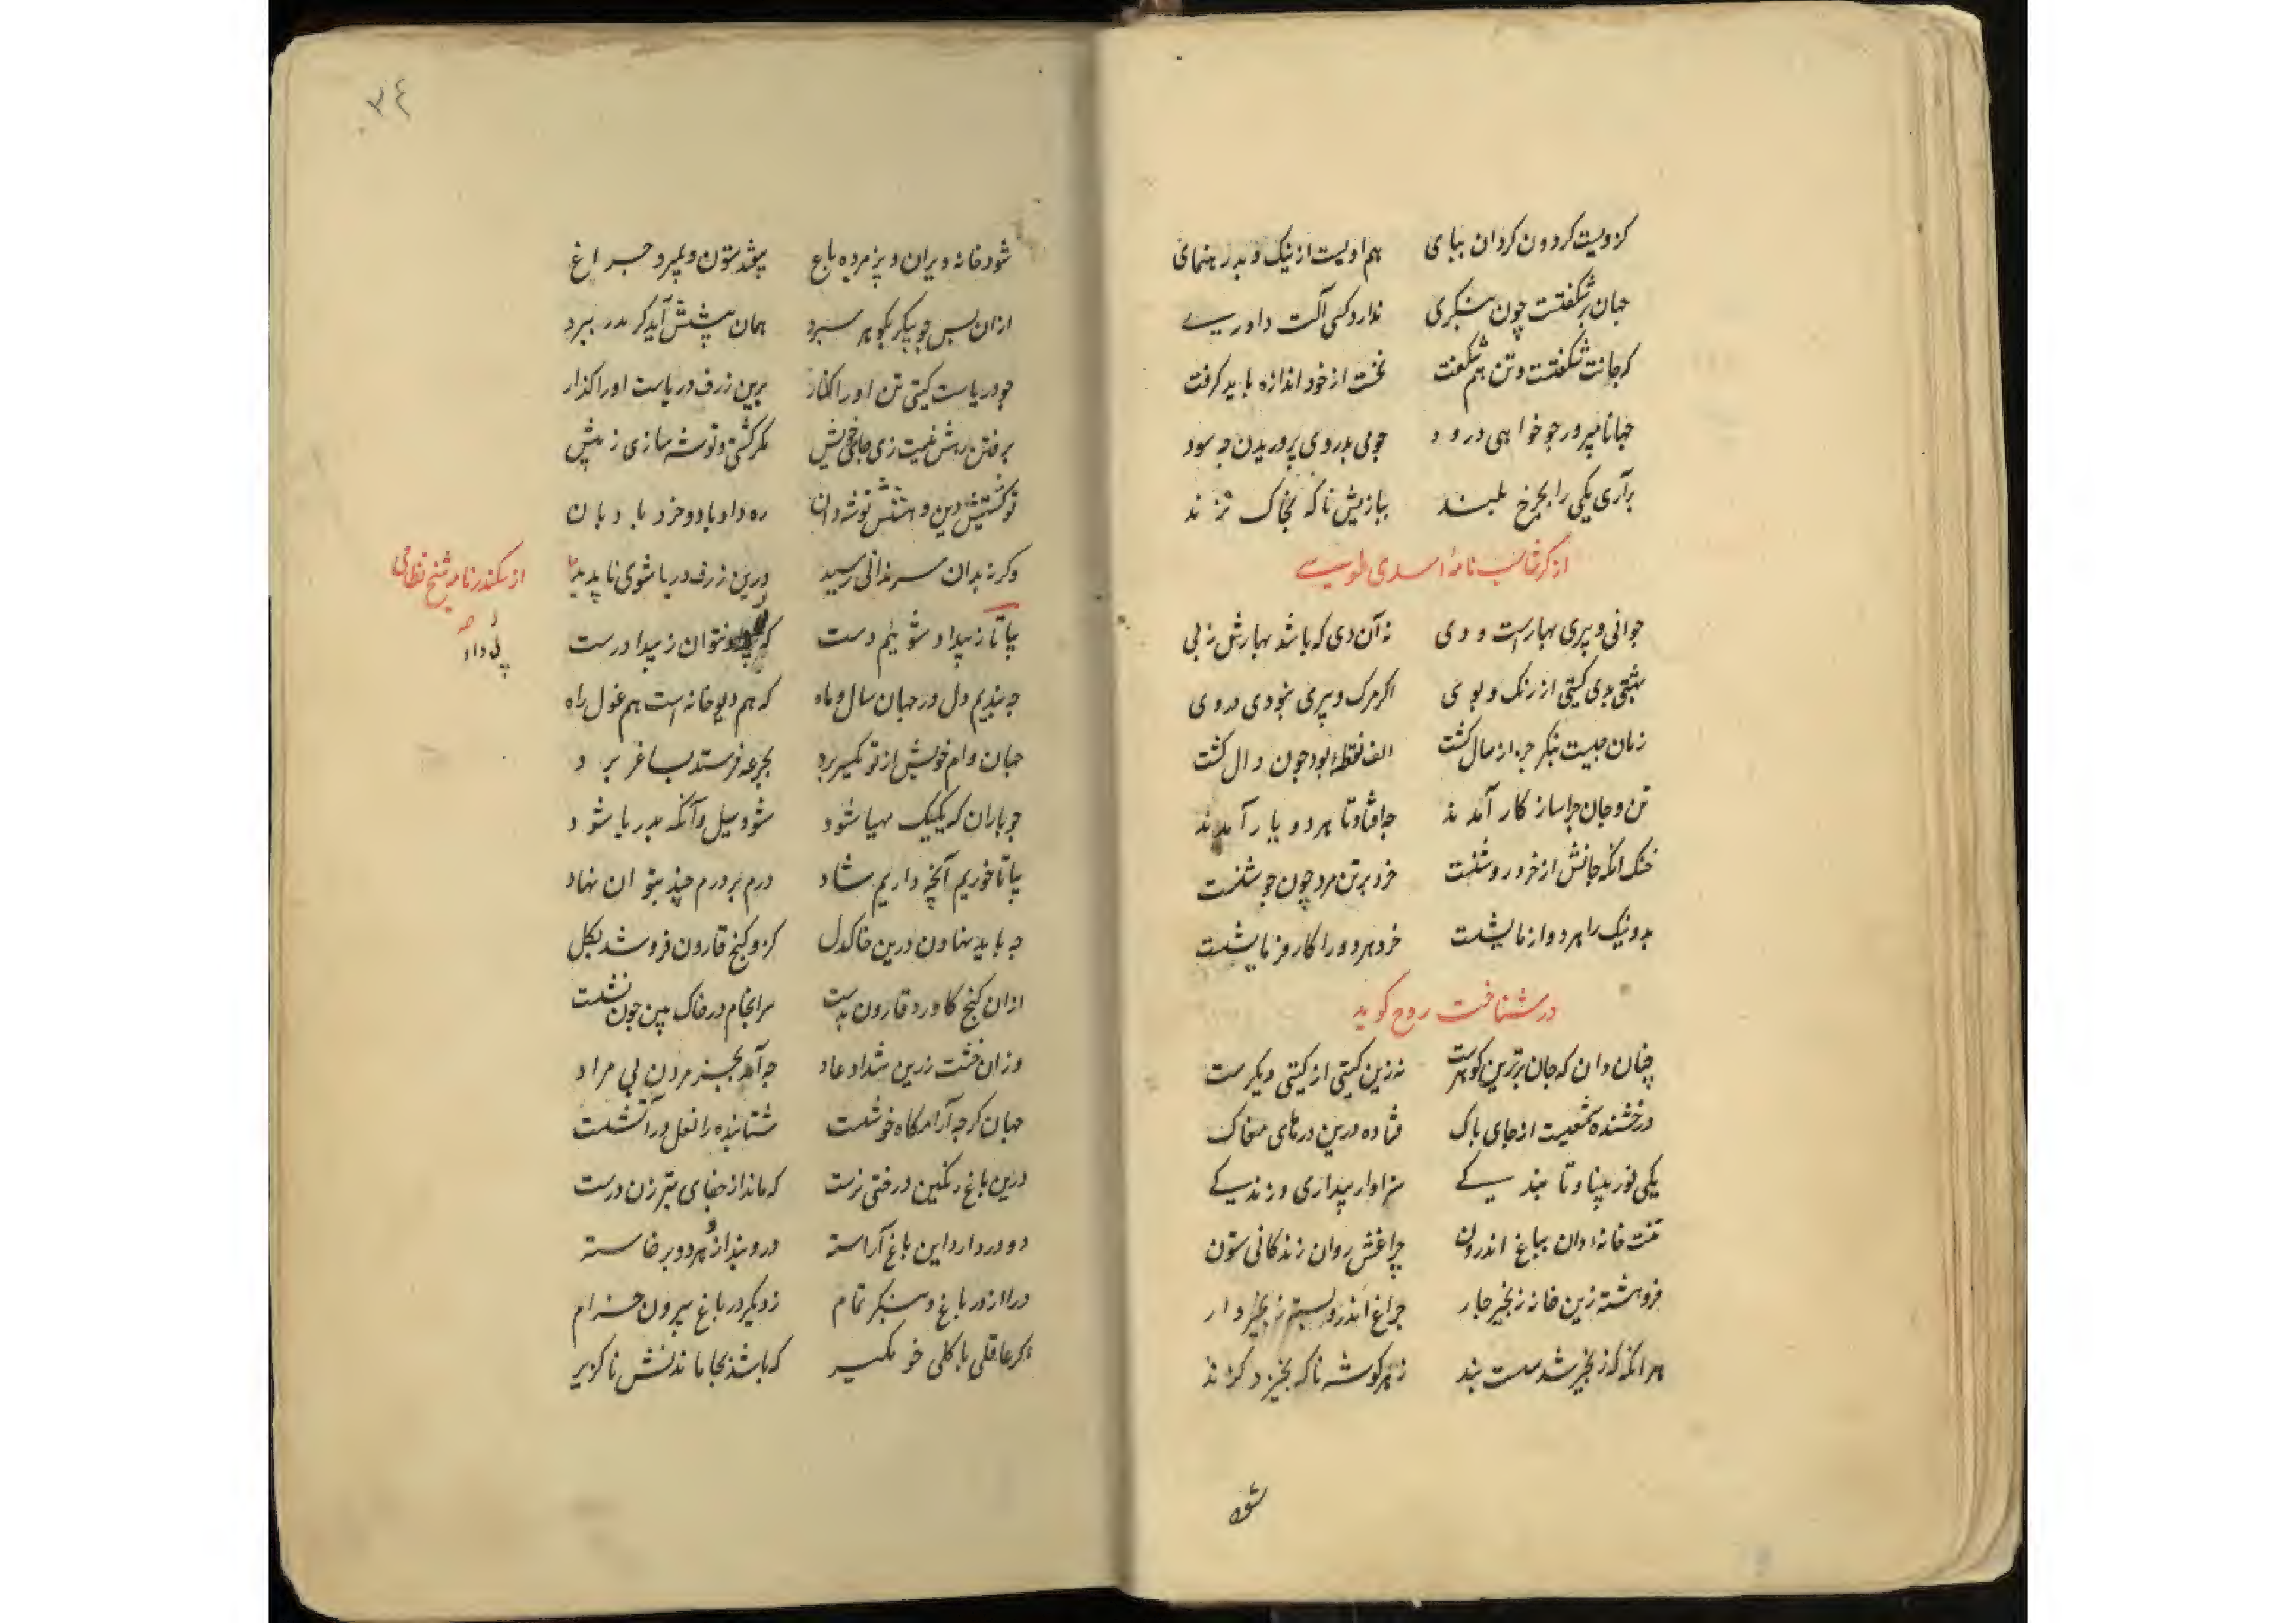 کزویست کردون کردان بپای هم اویست از نیک و بد رهنمای
جهان پرشکفتست چون بنکری ندارد کسی آلت داوری
که جانت شکفتست و تن هم شکفت نخست از خود اندازه باید کرفت
جهانا مپرور چو خواهی درود چو می بدروی پروریدن چه سود
برآری یکی را بچرخ بلند سپاریش ناکه بخاک نژند
از کرشاسب نامهٔ اسدی طوسی
جوانی و پیری بهارست و دی نه آن دی که باشد بهارش ز پی
بهشتی بدی کیتی از رنک و بوی اکر مرک و پیری نبودی دروی
زمان چیست بنکر چرا سال کشت الف نقطهٔ بود چون دال کشت
تن و جان چرا ساز کار آمدند چه افتاد تا هر دو یار آمدند
خنک انکه جانش از خرد روشنست خرد برتن مرد چون جوشنست
بد و نیک را هر دو ازمایشست خرد هر دو را کار فرمایشست
در شناخت روح کوید
چنان دان که جان برترین کوهرست نه زین کیتی از کیتی دیکرست
درخشنده شمعیست از جای پاک فتاده درین درهای مغاک
یکی نور بینا و تابندکی سزاوار بیداری و زندکی
تنت خانهٔ دان بباغ اندرون چراغش روان زندکانی ستون
فروهشته زین خانه زنجیر چار چراغ اندرو بسته زنجیروار
هر انکه که زنجیر شد سست بند ز هر کوشه ناکه بخیزد کزند
شود
۳۴
شود خانه ویران و پژمرده باغ بیفتد ستون و بمیرد چراغ
ازان پس چو پیکر بکوهر سپرد همان پیشش آید کز ایدر ببرد
چو دریاست کیتی تن او را کنار برین ژرف دریاست او را کذار
برفتن رهش نیست زی جای خویش مکر کشتی و توشه سازی ز پیش
تو کشتیش دین و دهش توشه دان ره داد باد و خرد بادبان
وکر نه بدان سر ندانی رسید درین ژرف دریا شوی ناپدید
از سکندرنامه شیخ نظامی
بیا تا ز بیداد شوئیم دست که نتوان ز بیداد رست
چه بندیم دل در جهان سال و ماه که هم دیو خانه است هم غول راه
جهان وام خویش از تو یکسر برد بجرعه فرستد بساغر برد
چو باران که یکیک مهیا شود شود سیل و آنکه بدریا شود
بیا تا خوریم آنچه داریم شاد درم بر درم چند بتوان نهاد
چه باید نهادن درین خاک دل کزو کنج قارون فروشد بکل
ازان کنج کاورد قارون بدست سرانجام در خاک بین چون نشست
وزان خشت زرین شداد عاد چه آمد بجز مردن بی مراد
جهان کرچه آرامکاه خوشست شتابنده را نعل در آتشست
درین باغ رنکین درختی نرست که ماند از جفای تبرزن درست
دو در دارد این باغ آراسته در و بند ازو هر دو برخاسته
درا از در باغ و بنکر تمام ز دیکر در باغ بیرون خرام
اکر عاقلی با کلی خو مکیر که باشد بجا ماندنش ناکزیر